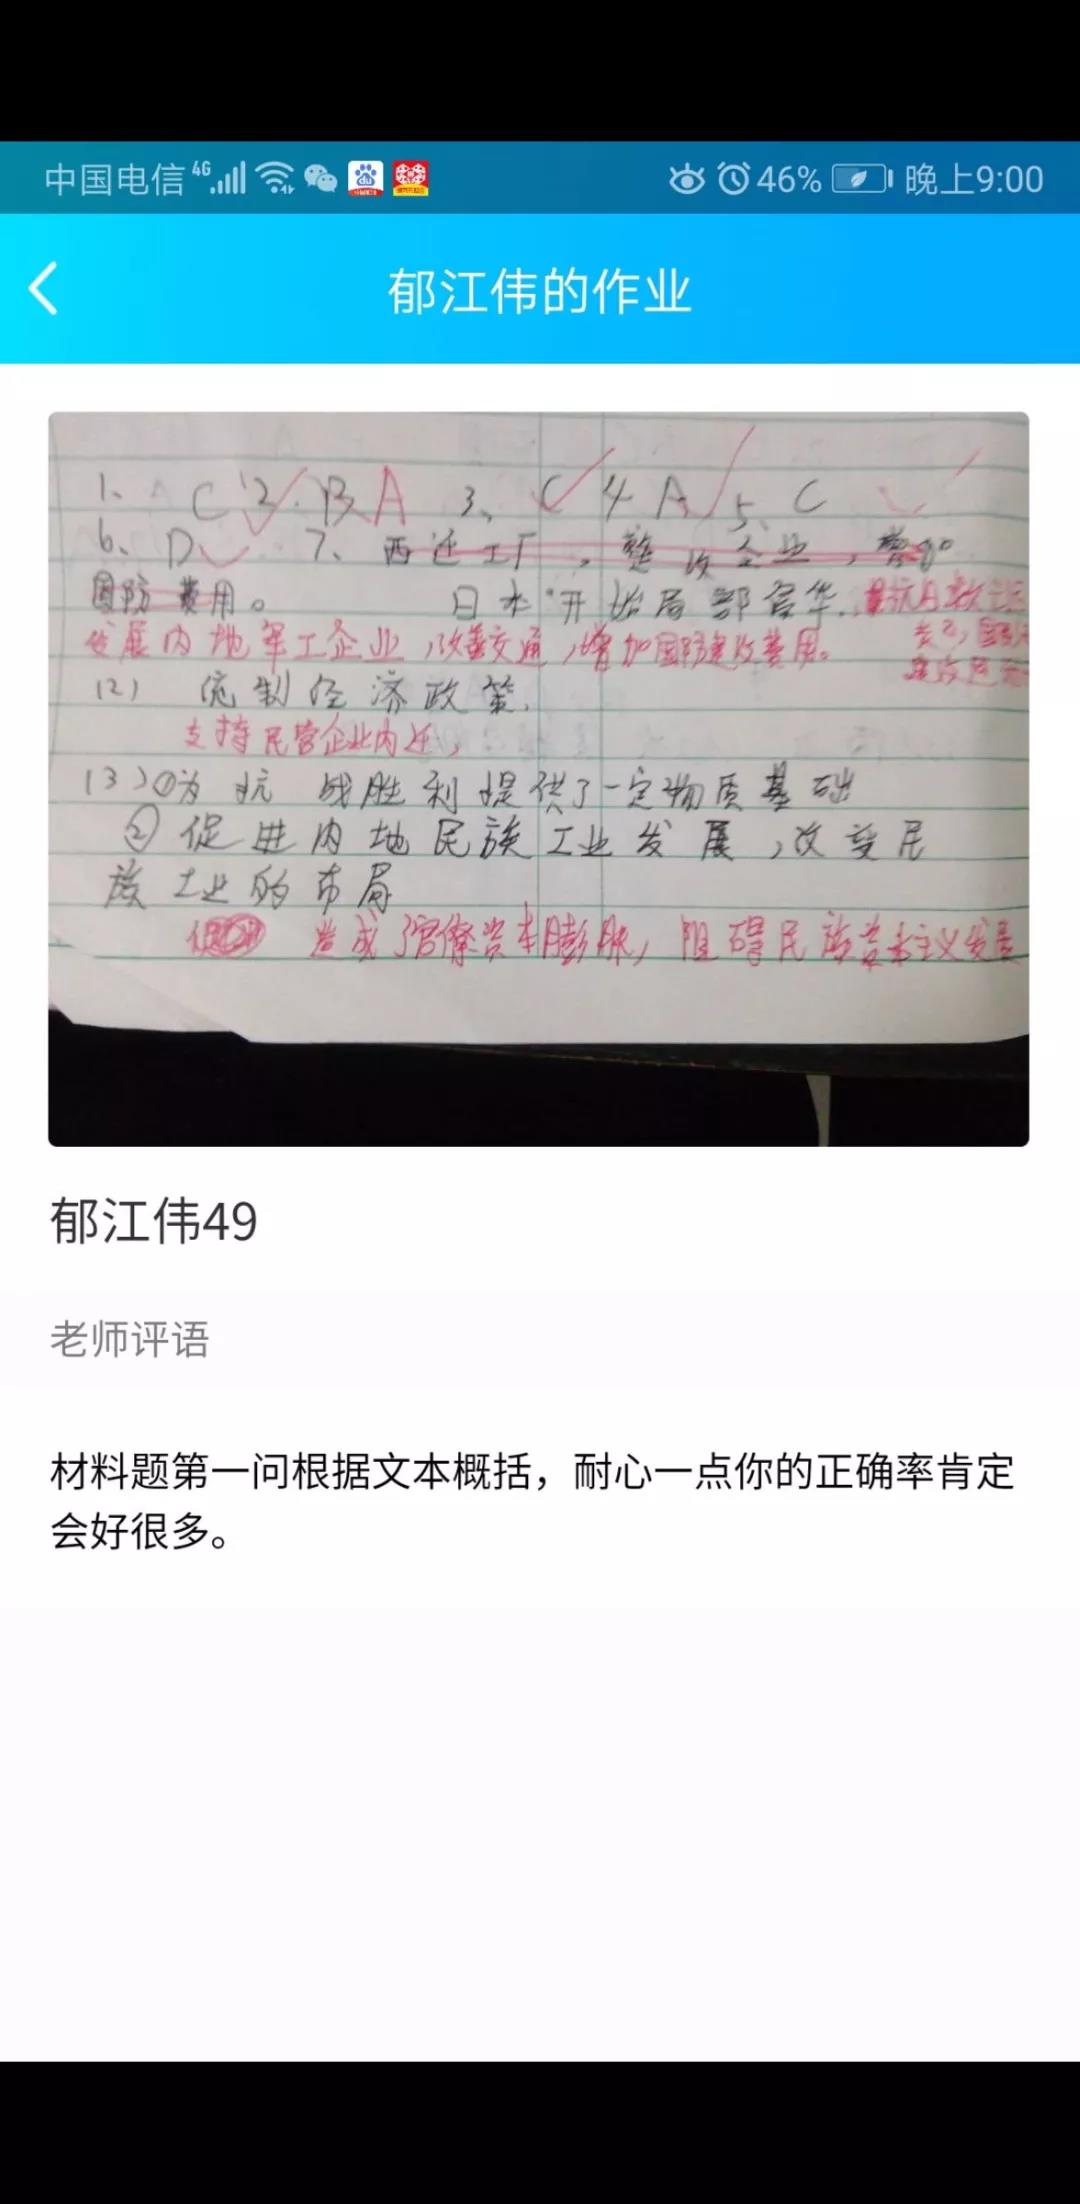 中国电信 4G 46% 晚上9:00
郁江伟的作业
1、C 2、B A 3、C 4 A 5、C
6、D 7、西迁工厂，整改企业，增加
国防费用。 日本开始局部侵华，
发展内地军工企业，改善交通，增加国防建设费用。
(2) 统制经济政策，
支持民营企业内迁，
(3)①为抗战胜利提供了一定物质基础
②促进内地民族工业发展，改变民
族工业的布局
造成了官僚资本膨胀，阻碍民族资本主义发展
郁江伟49
老师评语
材料题第一问根据文本概括，耐心一点你的正确率肯定
会好很多。